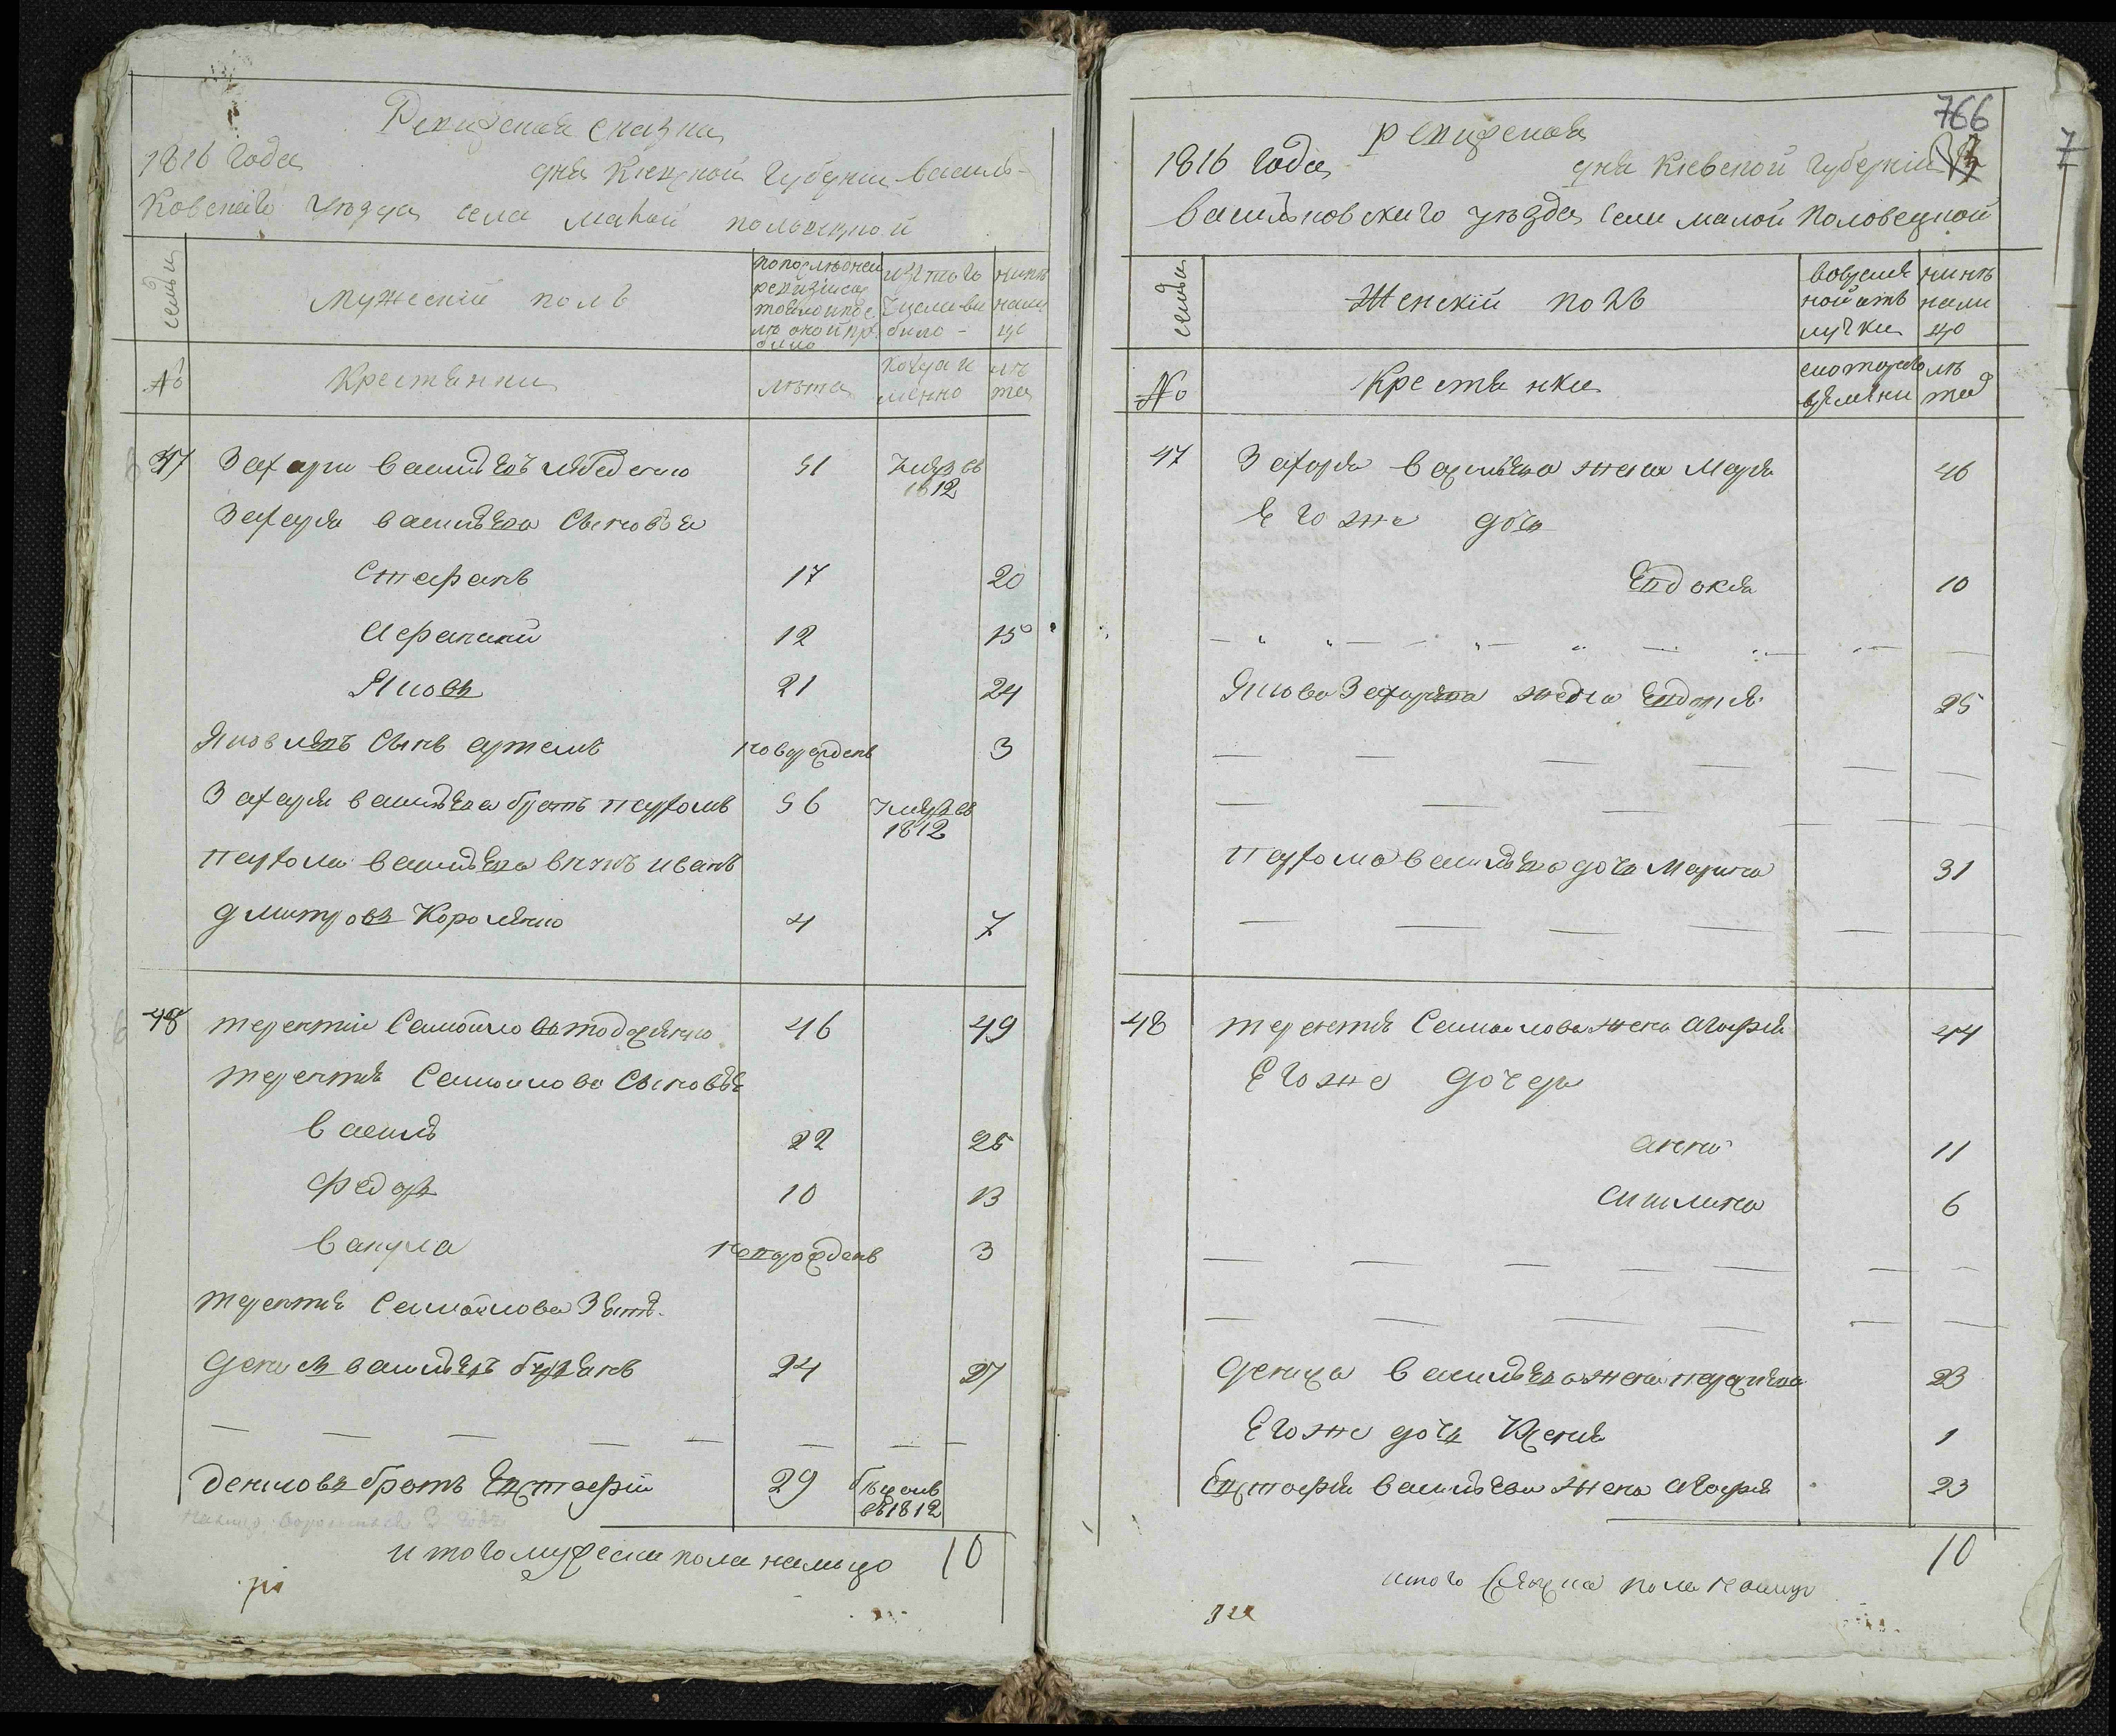 Ревизская сказка
1816 года дня Киевской Губернии Василь-
ковского уезда села малой половецкой
семьи
Мужеский полъ
по последней ревизии состояло и после оной прибыло
изъ того числа выбыло
ныне налицо
№
Крестьяне
лѣта
когда именно
лѣта
47 Захарій васильевъ лебеденко 51 умеръ въ 1812
Захарія васильева Сыновья
Стефанъ 17 20
Афанасій 12 15
Яковъ 21 24
Яковлевъ Сынъ артемъ новорожденъ 3
Захарія васильева братъ пархомъ 56 умеръ въ 1812
пархома васильева внукъ иванъ
дмитровъ Короленко 4 7
48 терентій Самойловъ 46 49
терентія Самойлова Сыновья
василь 22 25
Федоръ 10 13
вакула новорожденъ 3
терентія Самойлова Зять
денисъ васильевъ 24 27
денисовъ братъ Евстафій 29 въ 1812
итого мужеска пола налицо 10
766
ревизская
1816 года дня Киевской Губерніи
васильковскаго уѣзда села малой Половецкой
семьи
Женскій полъ
во временной отлучке
ныне налицо
№
Крестьянки
с котораго времени
лѣта
47 Захарія васильева жена Марья 46
Его же дочь
Евдокія 10
Якова Захарьева жена Евдокія 25
Пархома васильева дочь Марина 31
48 терентія Самойлова жена агафія 44
Его же дочери
анна 11
акилина 6
дениса васильева жена параскева 23
Его же дочь Ксенія 1
Евстафія васильева жена агафія 23
10
итого женска пола налицо